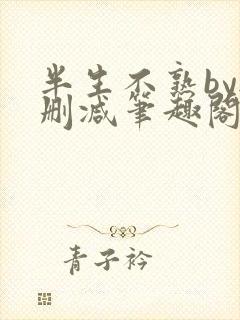 半生不熟by
删减笔趣阁
青子衿